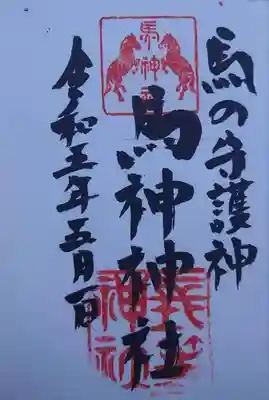 馬の守護神
馬神
馬神神社
長等神社
令和五年五月一日